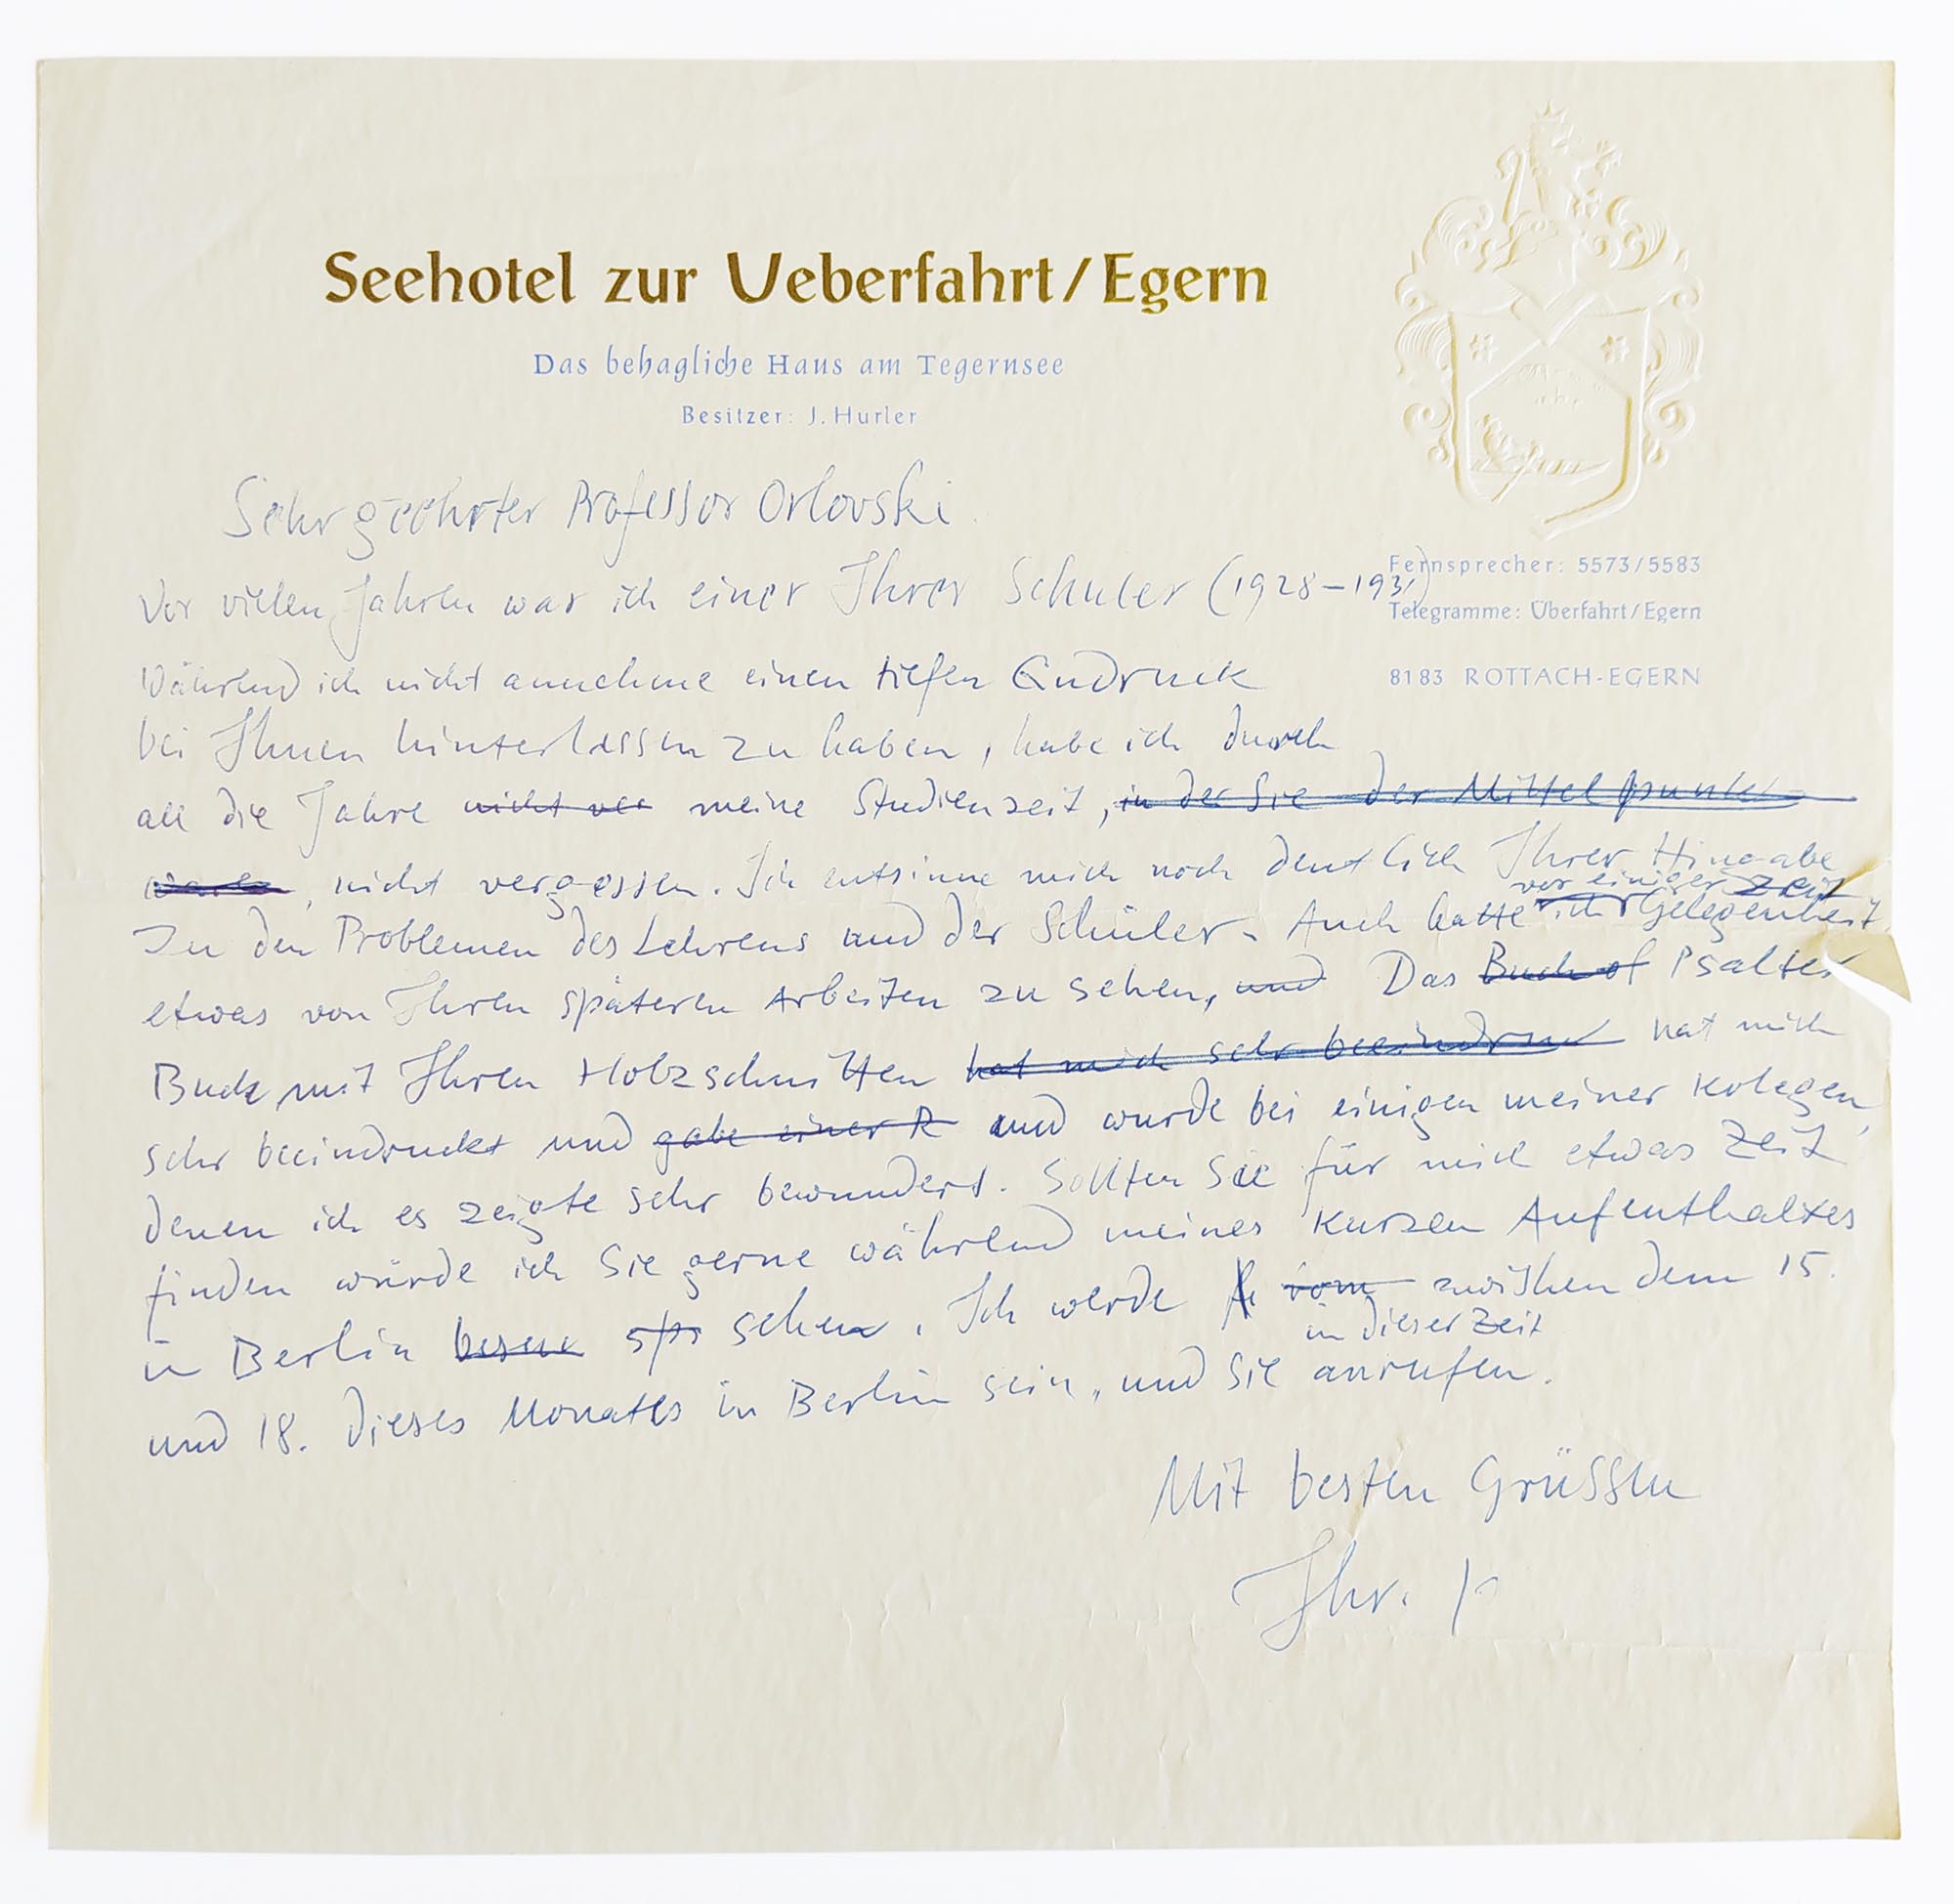 Seehotel zur Ueberfahrt/Egern
Das behagliche Haus am Tegernsee
Besitzer: J. Hurler
Fernsprecher: 5573/5583
Telegramme: Überfahrt/Egern
8183 ROTTACH-EGERN
Sehr geehrter Professor Orlovski
Vor vielen Jahren war ich einer Ihrer Schuler (1928–1931)
Während ich nicht annehme einen tiefen Eindruck
bei Ihnen hinterlassen zu haben, habe ich durch
all die Jahre nicht ver meine Studienzeit, in der Sie der Mittelpunkt
waren, nicht vergessen. Ich entsinne mich noch deutlich Ihrer Hingabe
vor einiger Zeit
In den Problemen des Lehrens und der Schüler. Auch hatte ich Gelegenheit
etwas von Ihren späteren Arbeiten zu sehen, und Das Buch of Psalter
Buch mit Ihren Holzschnitten hat mich sehr beeindruck hat mich
sehr beeindruckt und gabe einer R und wurde bei einigen meiner Kolegen,
denen ich es zeigte sehr bewundert. Sollten Sie für mich etwas Zeit
finden würde ich Sie gerne während meines kurzen Aufenthaltes
in Berlin besuc spr sehen. Ich werde vom zwischen dem 15.
in dieser Zeit
und 18. dieses Monates in Berlin sein, und Sie anrufen.
Mit besten Grüssen
Ihr.